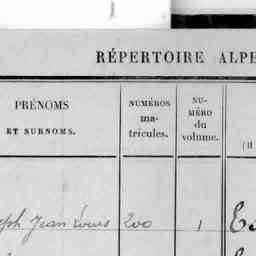 RÉPERTOIRE ALPH
PRÉNOMS
ET SURNOMS.
NUMÉROS
ma-
tricules.
NU-
MÉRO
du
volume.
eph Jean Louis 200 1